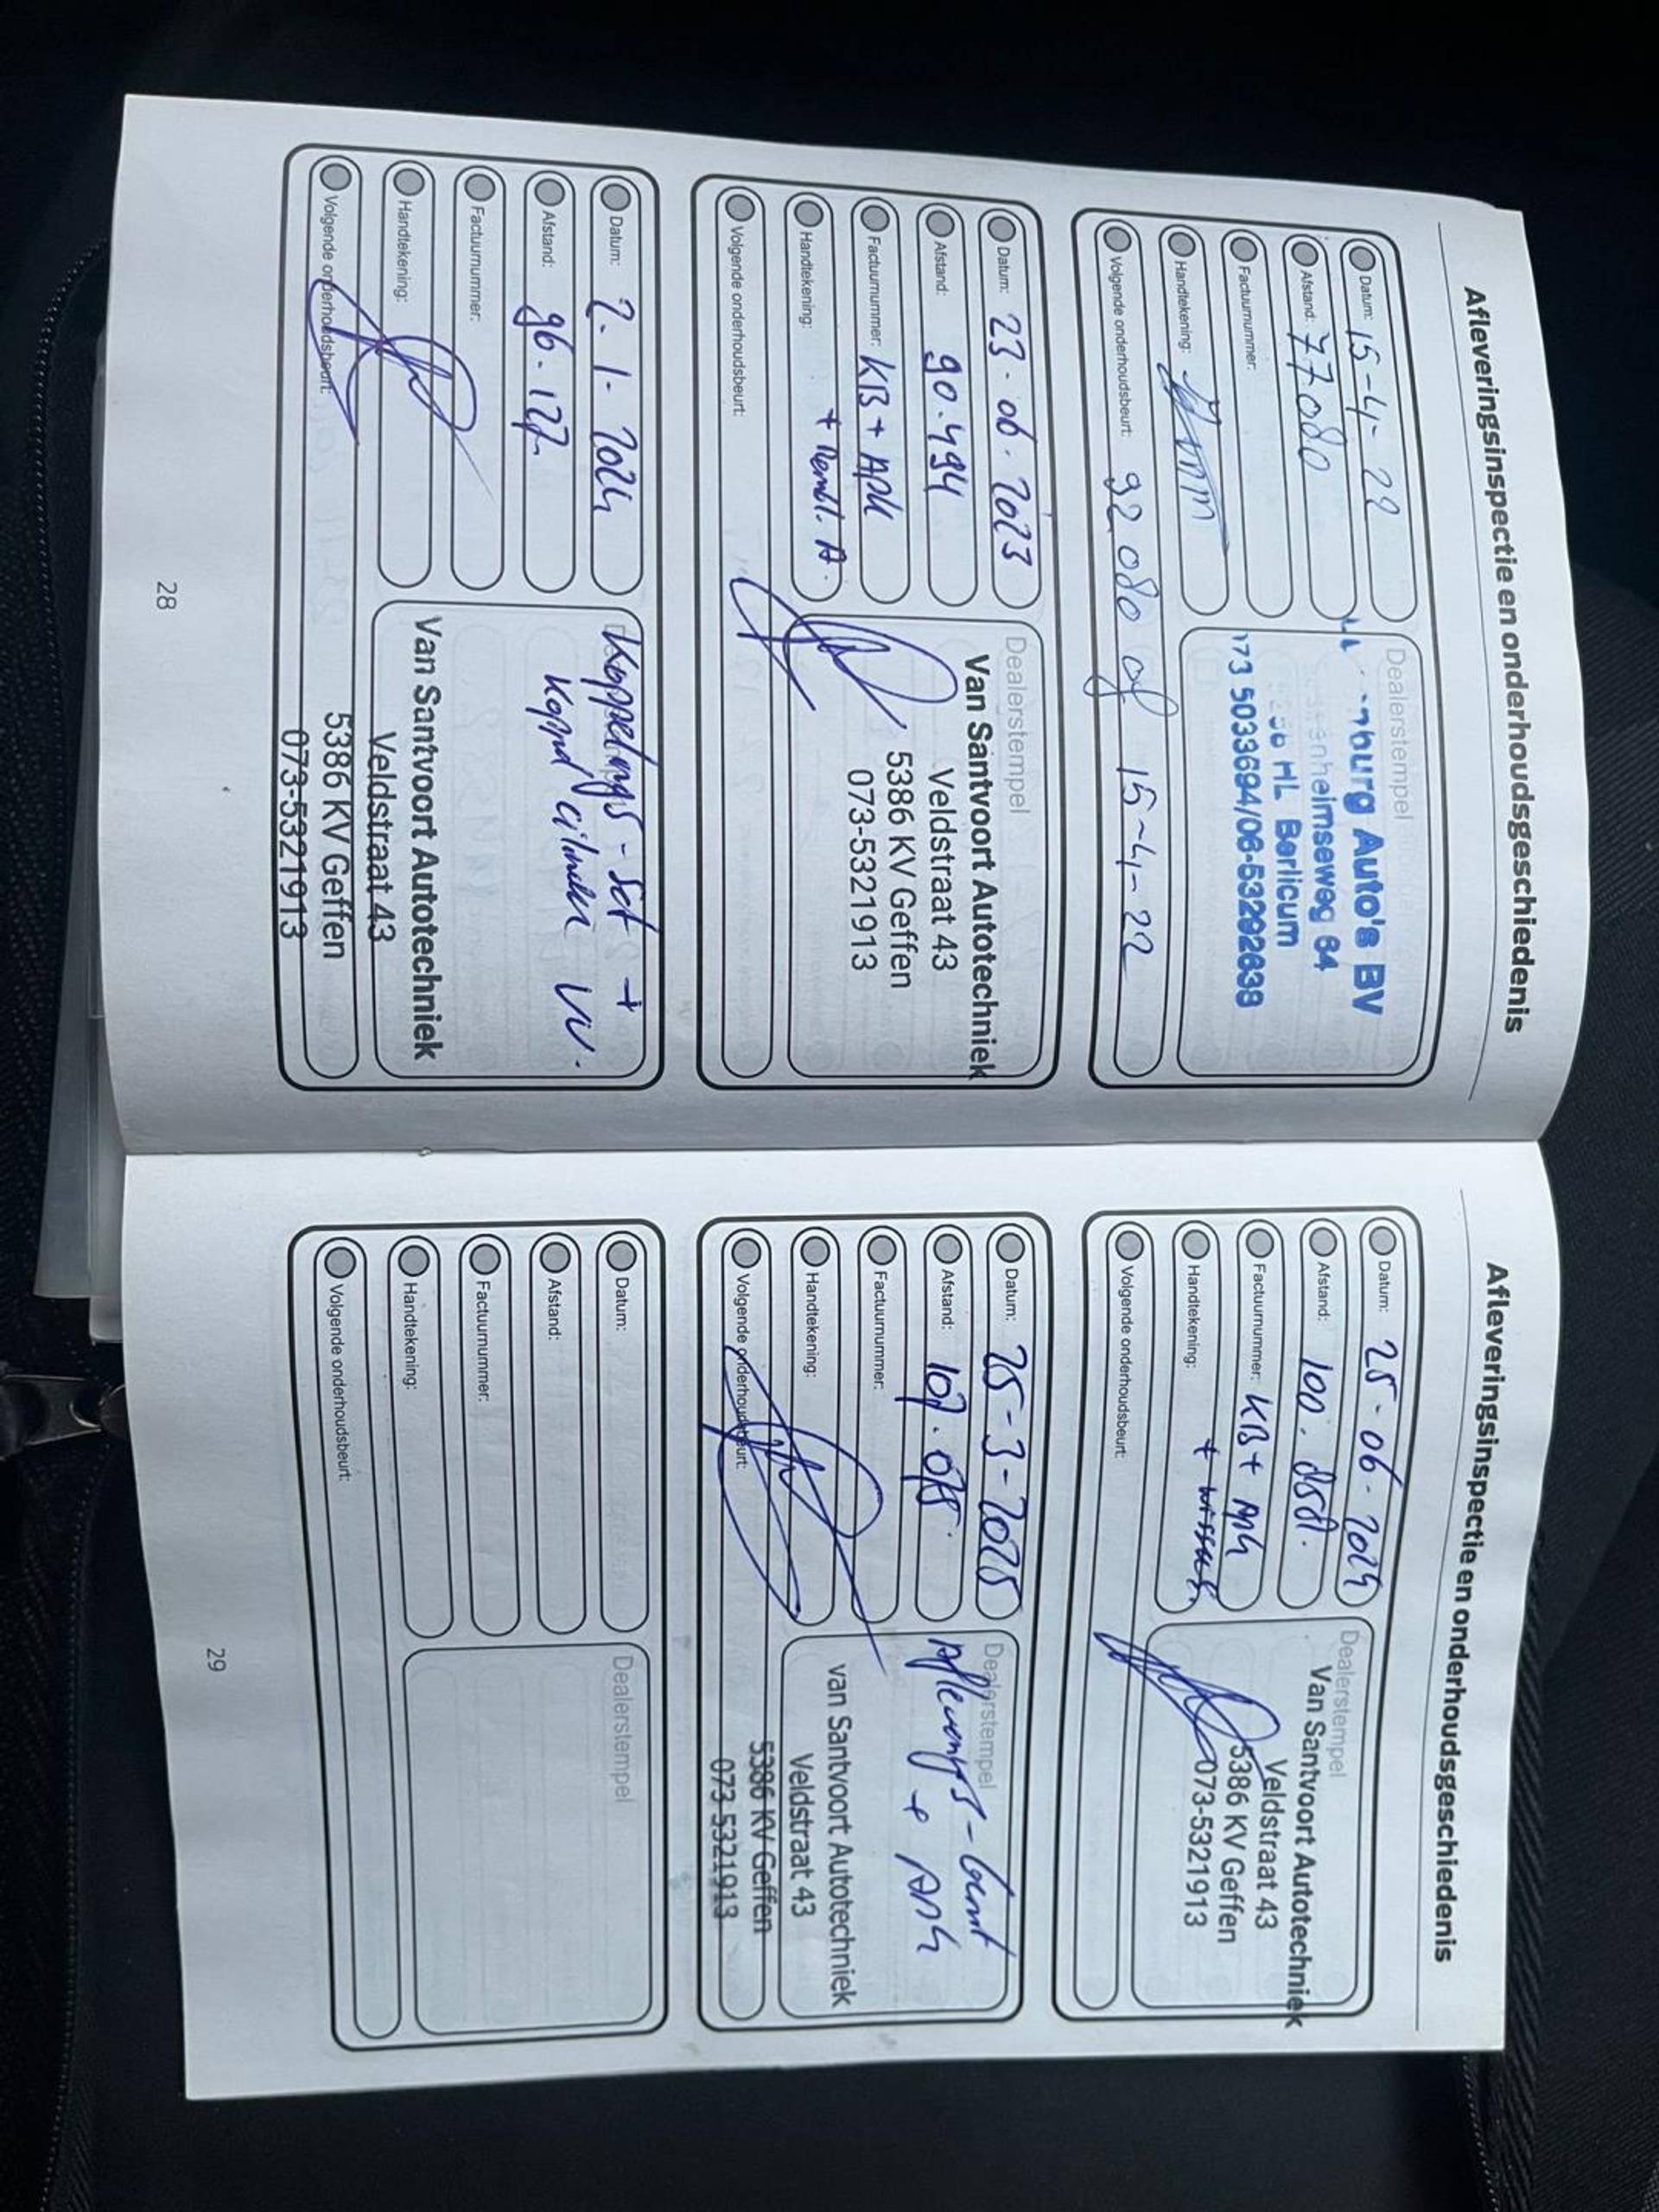 Afleveringsinspectie en onderhoudsgeschiedenis
Datum: 15-4-22
Afstand: 77080
Factuurnummer:
Handtekening:
Volgende onderhoudsbeurt: 92 080 of 15-4-22
Dealerstempel
nburg Auto's BV
nheimseweg 64
HL Berlicum
073 5033694/06-53292638
Datum: 23-06-2023
Afstand: 90.494
Factuurnummer: KB + APK
Handtekening: + Remvl. A.
Volgende onderhoudsbeurt:
Dealerstempel
Van Santvoort Autotechniek
Veldstraat 43
5386 KV Geffen
073-5321913
Datum: 2-1-2024
Afstand: 96.127
Factuurnummer:
Handtekening:
Volgende onderhoudsbeurt:
Koppelings-Set +
Koppel cilinder VV.
Van Santvoort Autotechniek
Veldstraat 43
5386 KV Geffen
073-5321913
28
Afleveringsinspectie en onderhoudsgeschiedenis
Datum: 25-06-2024
Afstand: 100.
Factuurnummer: KB + APK
Handtekening: + wissers
Volgende onderhoudsbeurt:
Dealerstempel
Van Santvoort Autotechniek
Veldstraat 43
5386 KV Geffen
073-5321913
Datum: 25-3-2025
Afstand: 107.075
Factuurnummer:
Handtekening:
Volgende onderhoudsbeurt:
Dealerstempel
Afleverings-beurt
+ APK
van Santvoort Autotechniek
Veldstraat 43
5386 KV Geffen
073-5321913
Datum:
Afstand:
Factuurnummer:
Handtekening:
Volgende onderhoudsbeurt:
Dealerstempel
29